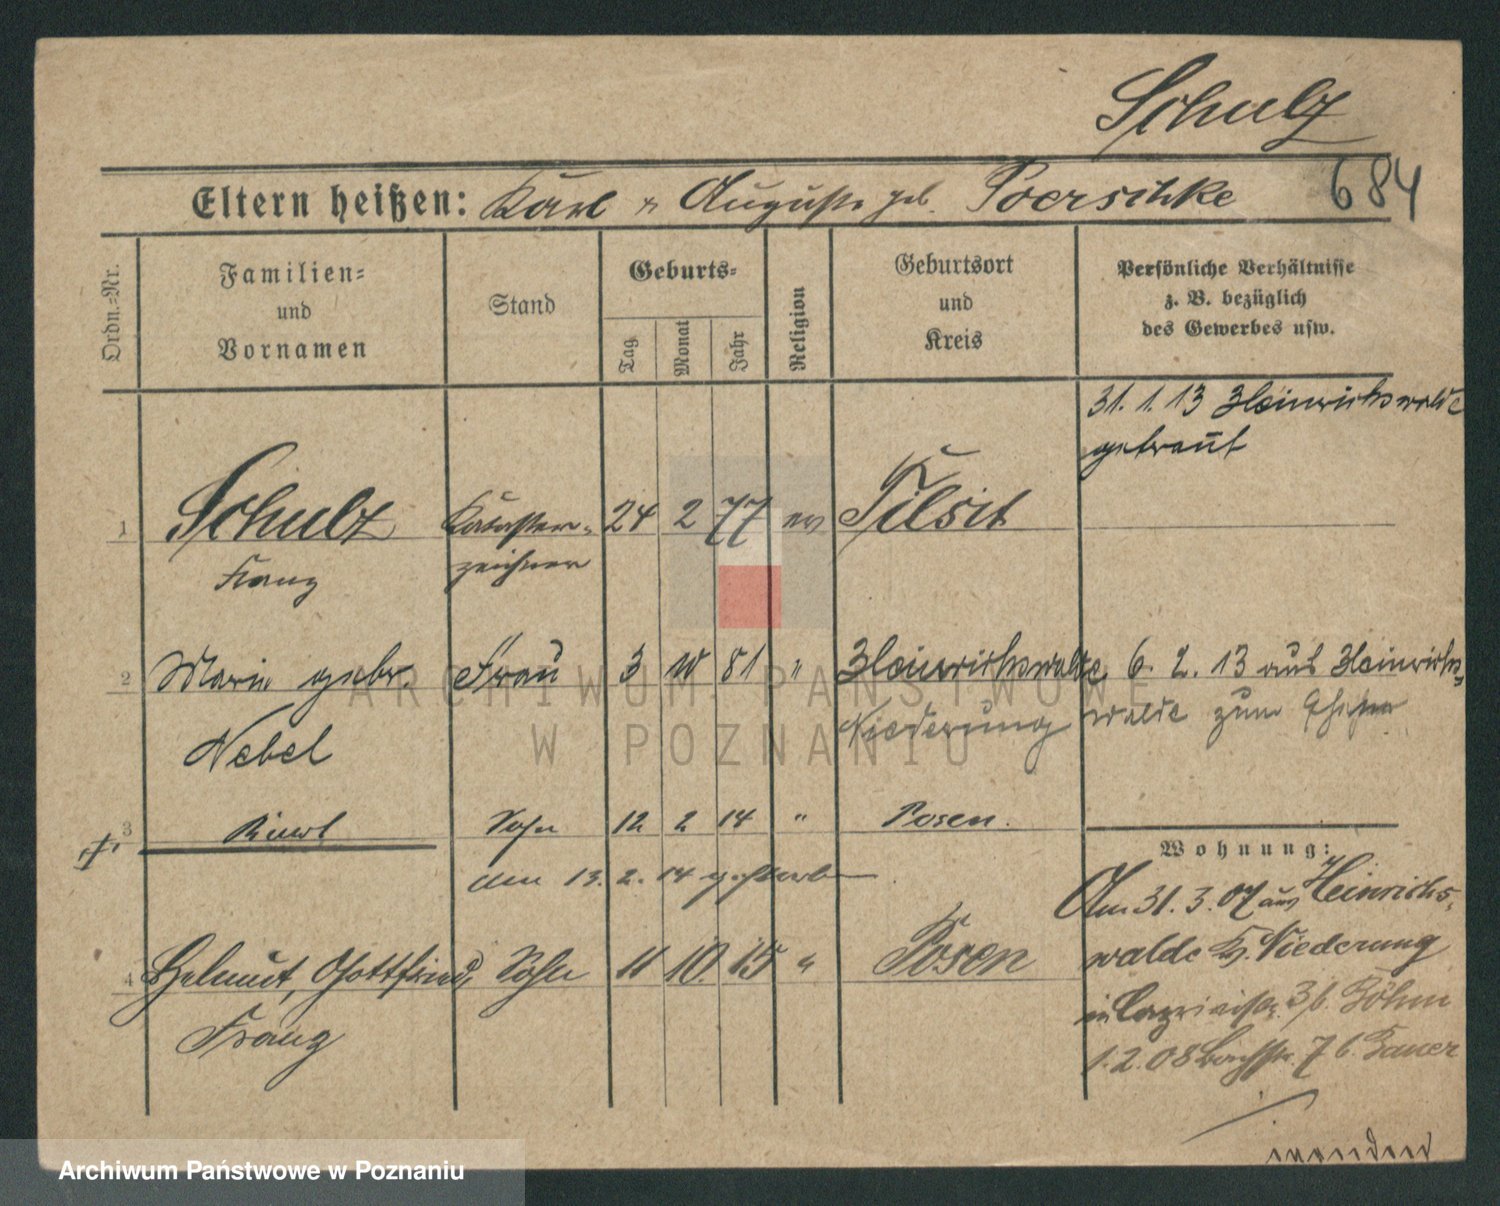 Schulz
Eltern heißen: Karl u Auguste geb. Poerschke 684
Ordn.=Nr.
Familien=
und
Vornamen
Stand
Geburts=
Tag
Monat
Jahr
Religion
Geburtsort
und
Kreis
Persönliche Verhältnisse
z. B. bezüglich
des Gewerbes usw.
31. 1. 13 Heinrichswalde
getraut
1 Schulz Kataster= 24 2 77 ev Tilsit
Franz zeichner
2 Marie gebr. Frau 3 10 81 " Heinrichswalde 6. 2. 13 aus Heinrichs=
Nebel Niederung walde zum
3 Sohn 12 2 14 " Posen.
den 13. 2. 14 gestorben
Wohnung:
Am 31. 3. 07 aus Heinrichs=
4 Helmut, Gottfried, Sohn 11 10. 15 " Posen walde Kr. Niederung
Franz in 3 b. Böhm
1. 2. 08 7 b. Bauer
ARCHIWUM PAŃSTWOWE
W POZNANIU
Archiwum Państwowe w Poznaniu